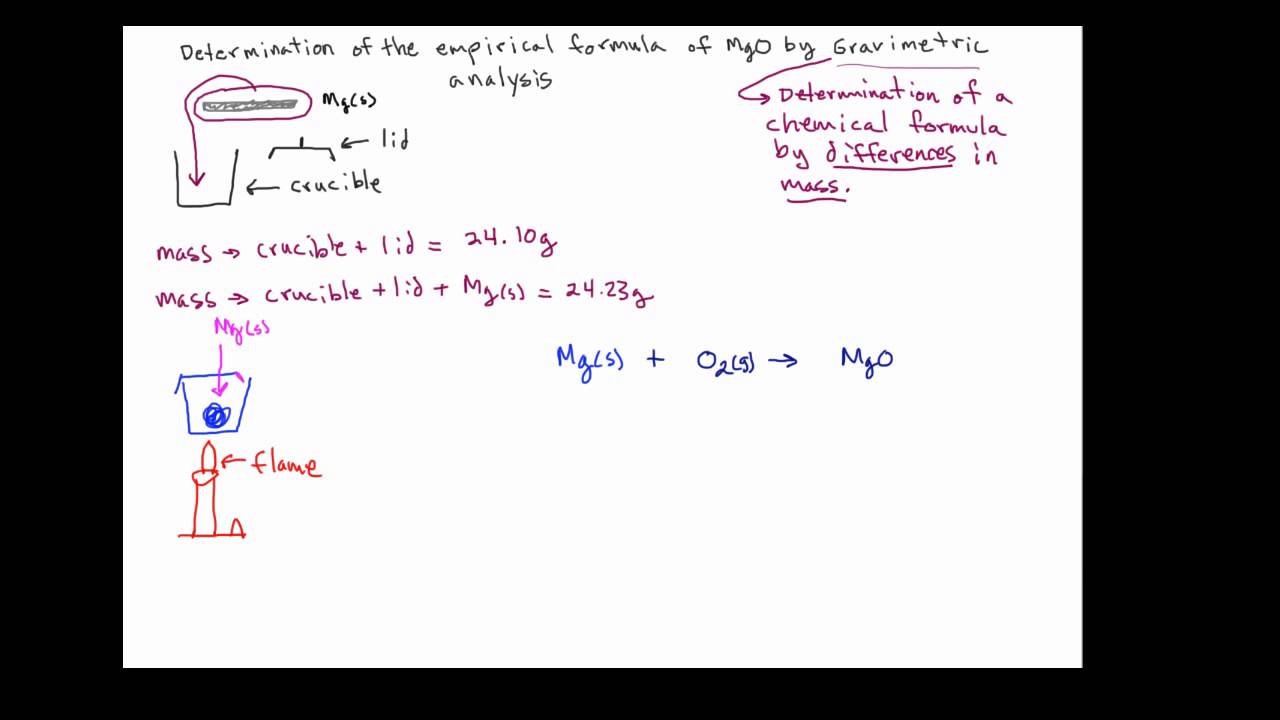 Determination of the empirical formula of MgO by Gravimetric
analysis
Mg(s)
lid
crucible
Determination of a
chemical formula
by differences in
mass.
mass → crucible + lid = 24.10g
mass → crucible + lid + Mg(s) = 24.23g
Mg(s)
Mg(s) + O₂(g) → MgO
flame